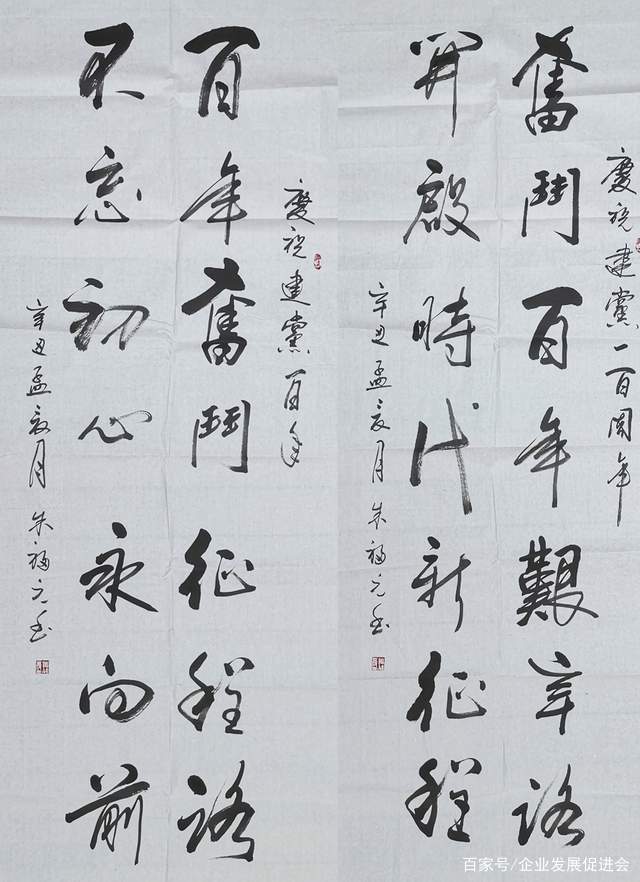 慶祝建黨一百周年
奮鬥百年艱辛路
開啟時代新征程
辛丑孟夏月 朱福元書
慶祝建黨百年
百年奮鬥征程路
不忘初心永向前
辛丑孟夏月 朱福元書
百家号/企业发展促进会